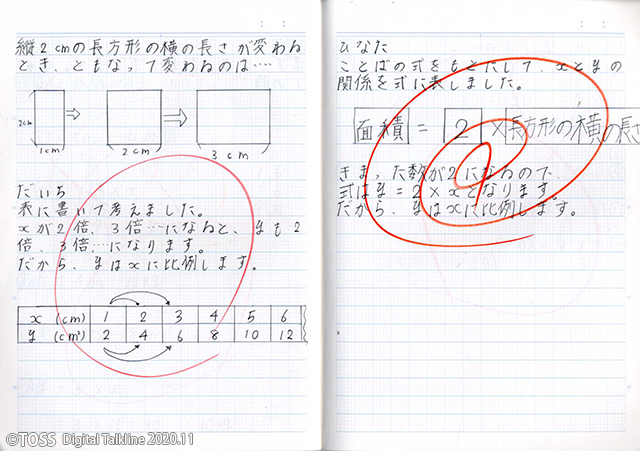 縦2cmの長方形の横の長さが変わる
とき、ともなって変わるのは…
2cm
1cm
2cm
3cm
だいち
表に書いて考えました。
xが2倍、3倍…になると、yも2
倍、3倍…になります。
だから、yはxに比例します。
x (cm) 1 2 3 4 5 6
y (cm²) 2 4 6 8 10 12
ひなた
ことばの式をもとにして、xとyの
関係を式に表しました。
面積 = 2 × 長方形の横の長さ
きまった数が2になるので、
式はy=2×xとなります。
だから、yはxに比例します。
©TOSS Digital Talkline 2020.11